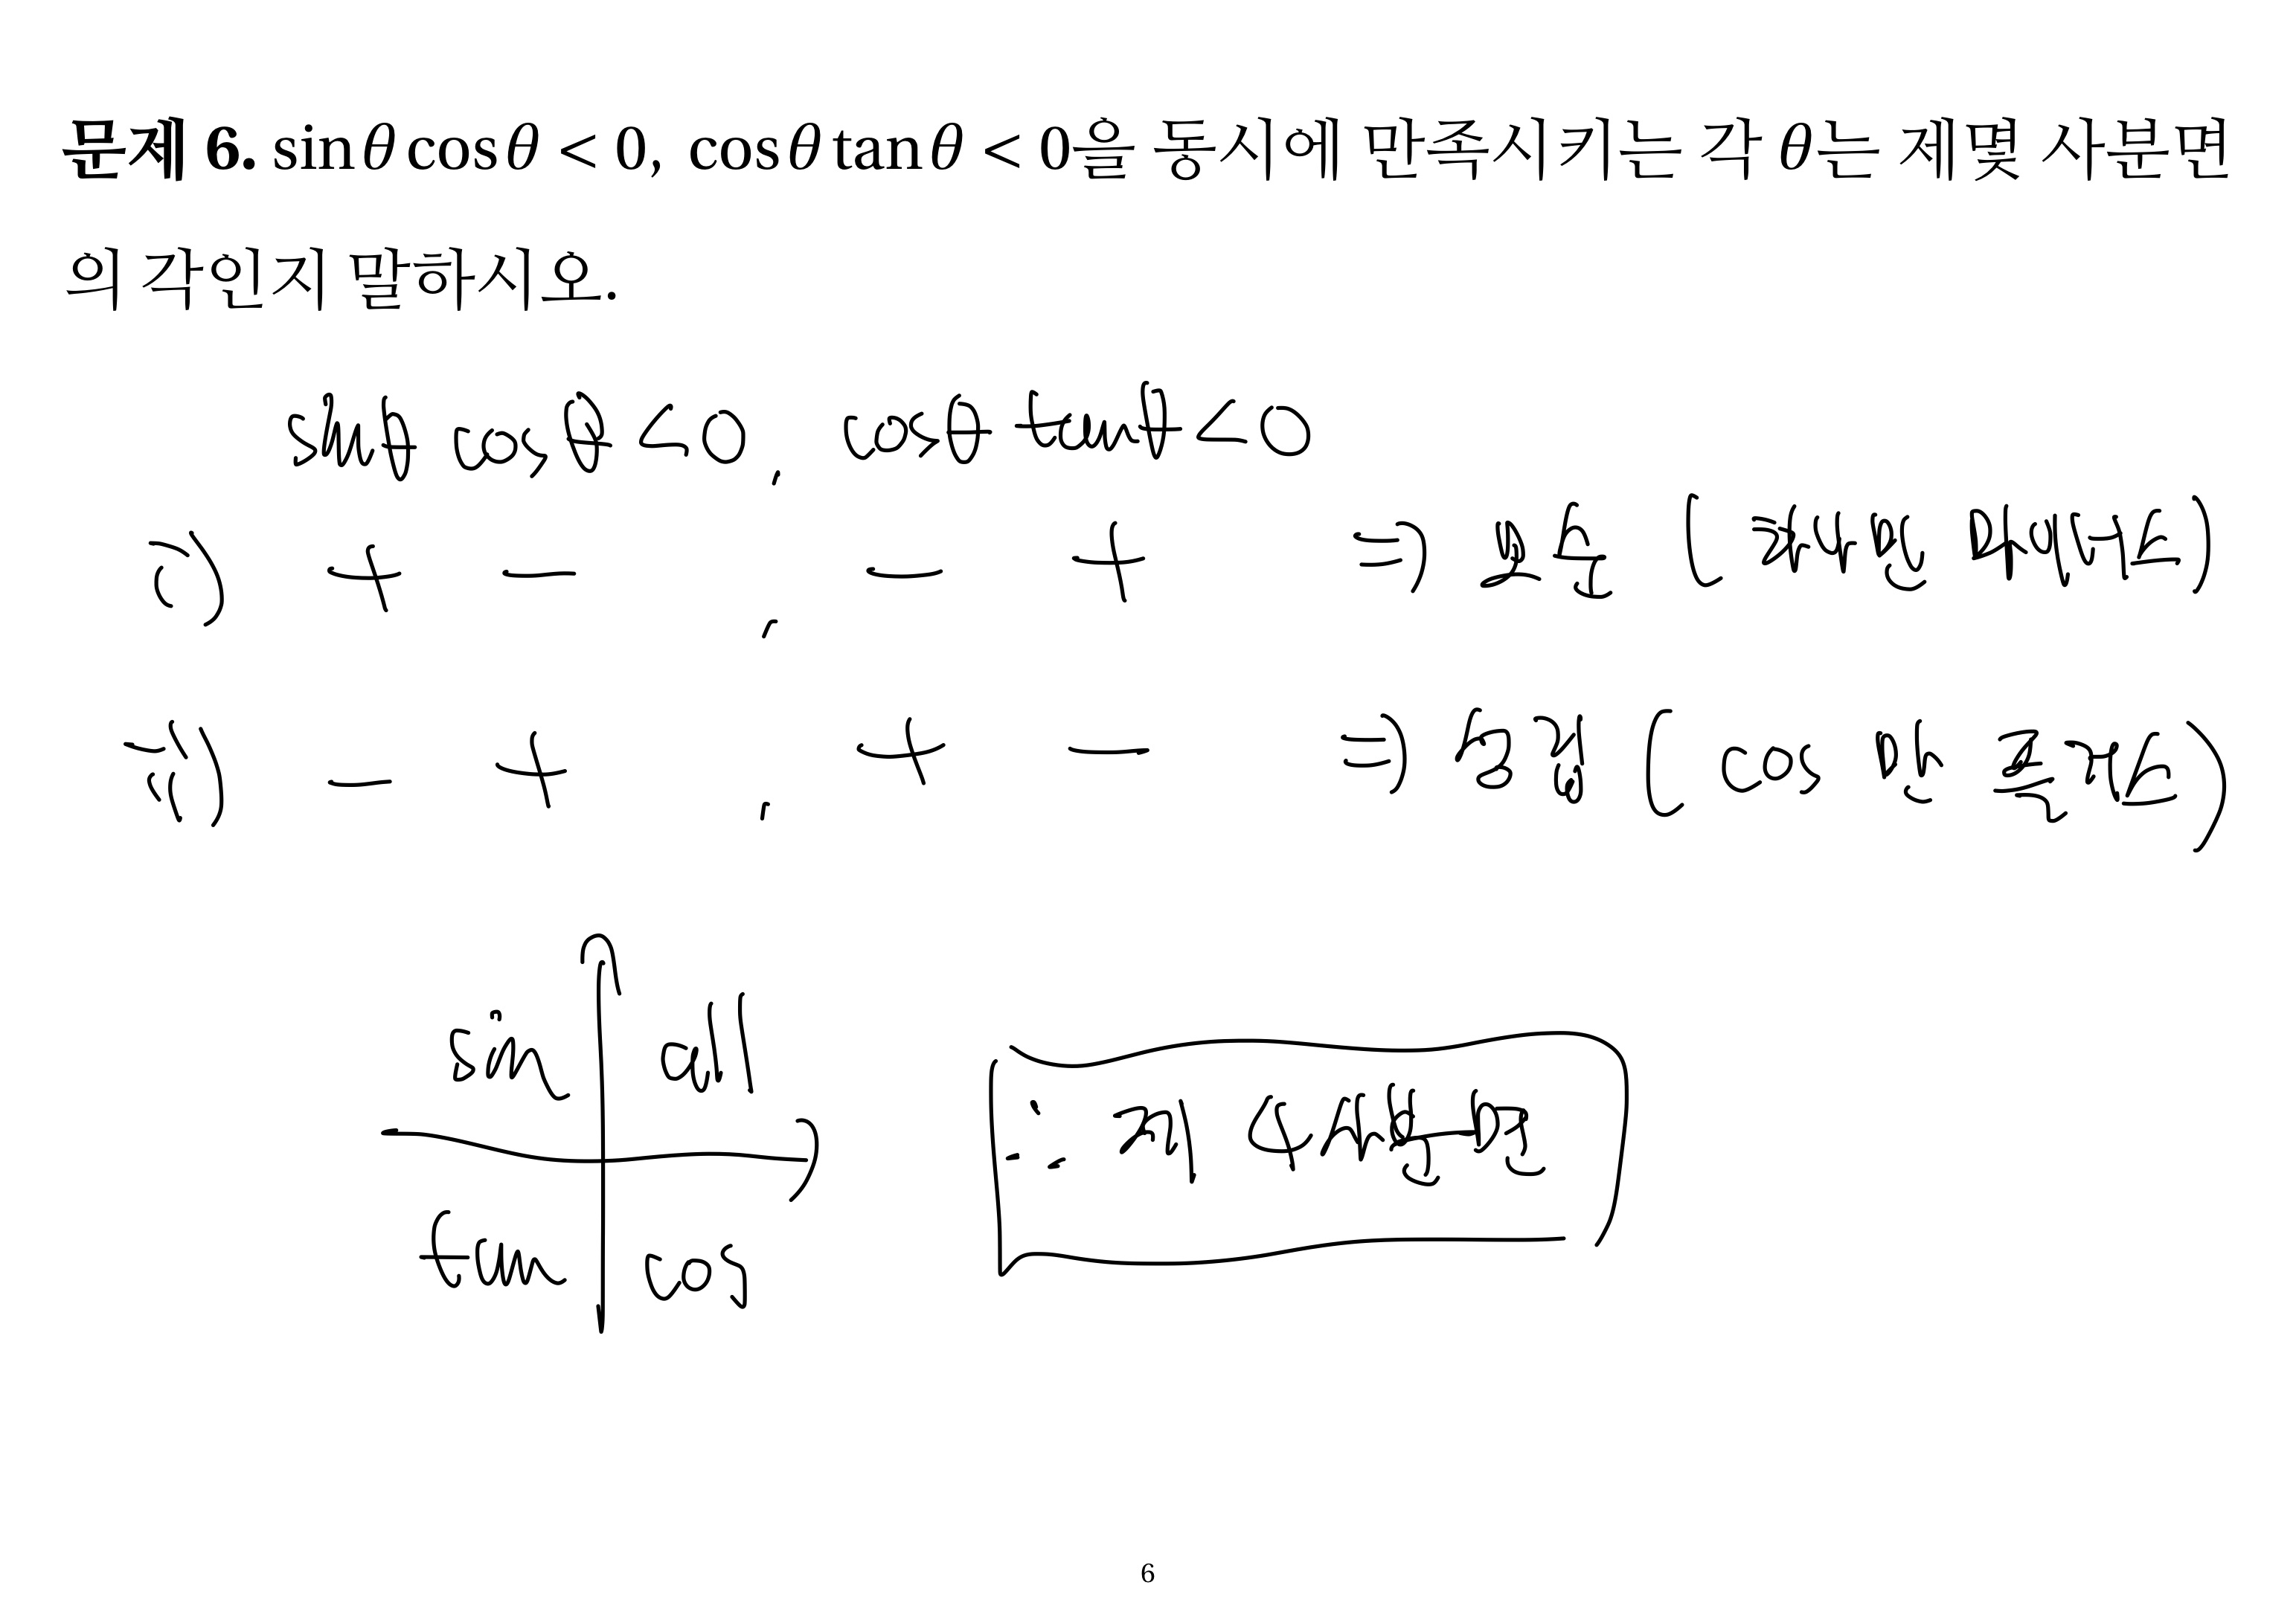 문제 6. sinθ cosθ < 0, cosθ tanθ < 0을 동시에 만족시키는 각 θ는 제 몇 사분면
의 각인지 말하시오.
sinθ cosθ < 0, cosθ tanθ < 0
i) + - , - + ⇒ 모순
ii) - + , + - ⇒ 성립 ( cos 만 양수 )
sin all
tan cos
∴ 제 4 사분면
6